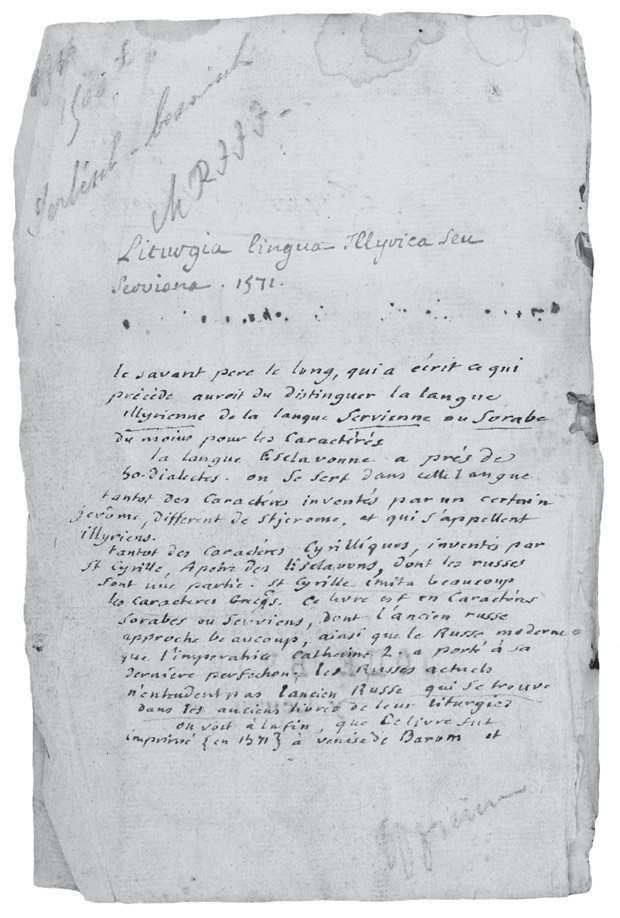 Liturgia lingua Illyrica seu
Serviana. 1571.
le savant pere le long, qui a écrit ce qui
précéde auroit du distinguer la langue
illyrienne de la langue Servienne ou Sorabe
du moins pour les Caractérés
la langue Esclavonne a prés de
dialectes. on se sert dans cette langue
tantot des Caractéres inventés par un certain
jerôme, different de St jerome, et qui s'appellent
illyriens.
tantot des Caractéres Cyrilliques, inventés par
St Cyrille, Apotre des Esclavons, dont les russes
sont une partie. St Cyrille imita beaucoup
les Caracteres Grecqs. Ce livre est en Caractéres
Sorabes ou Serviens, dont l'ancien russe
approche beaucoup, ainsi que le Russe moderne
que l'imperatrice Catherine 2. a porté à sa
derniere perfection. les Russes actuels
n'entendent pas l'ancien Russe qui se trouve
dans les anciens livres de leur liturgies
on voit à la fin, que Ce livre fut
imprimé {en 1571} à venise de Barom et